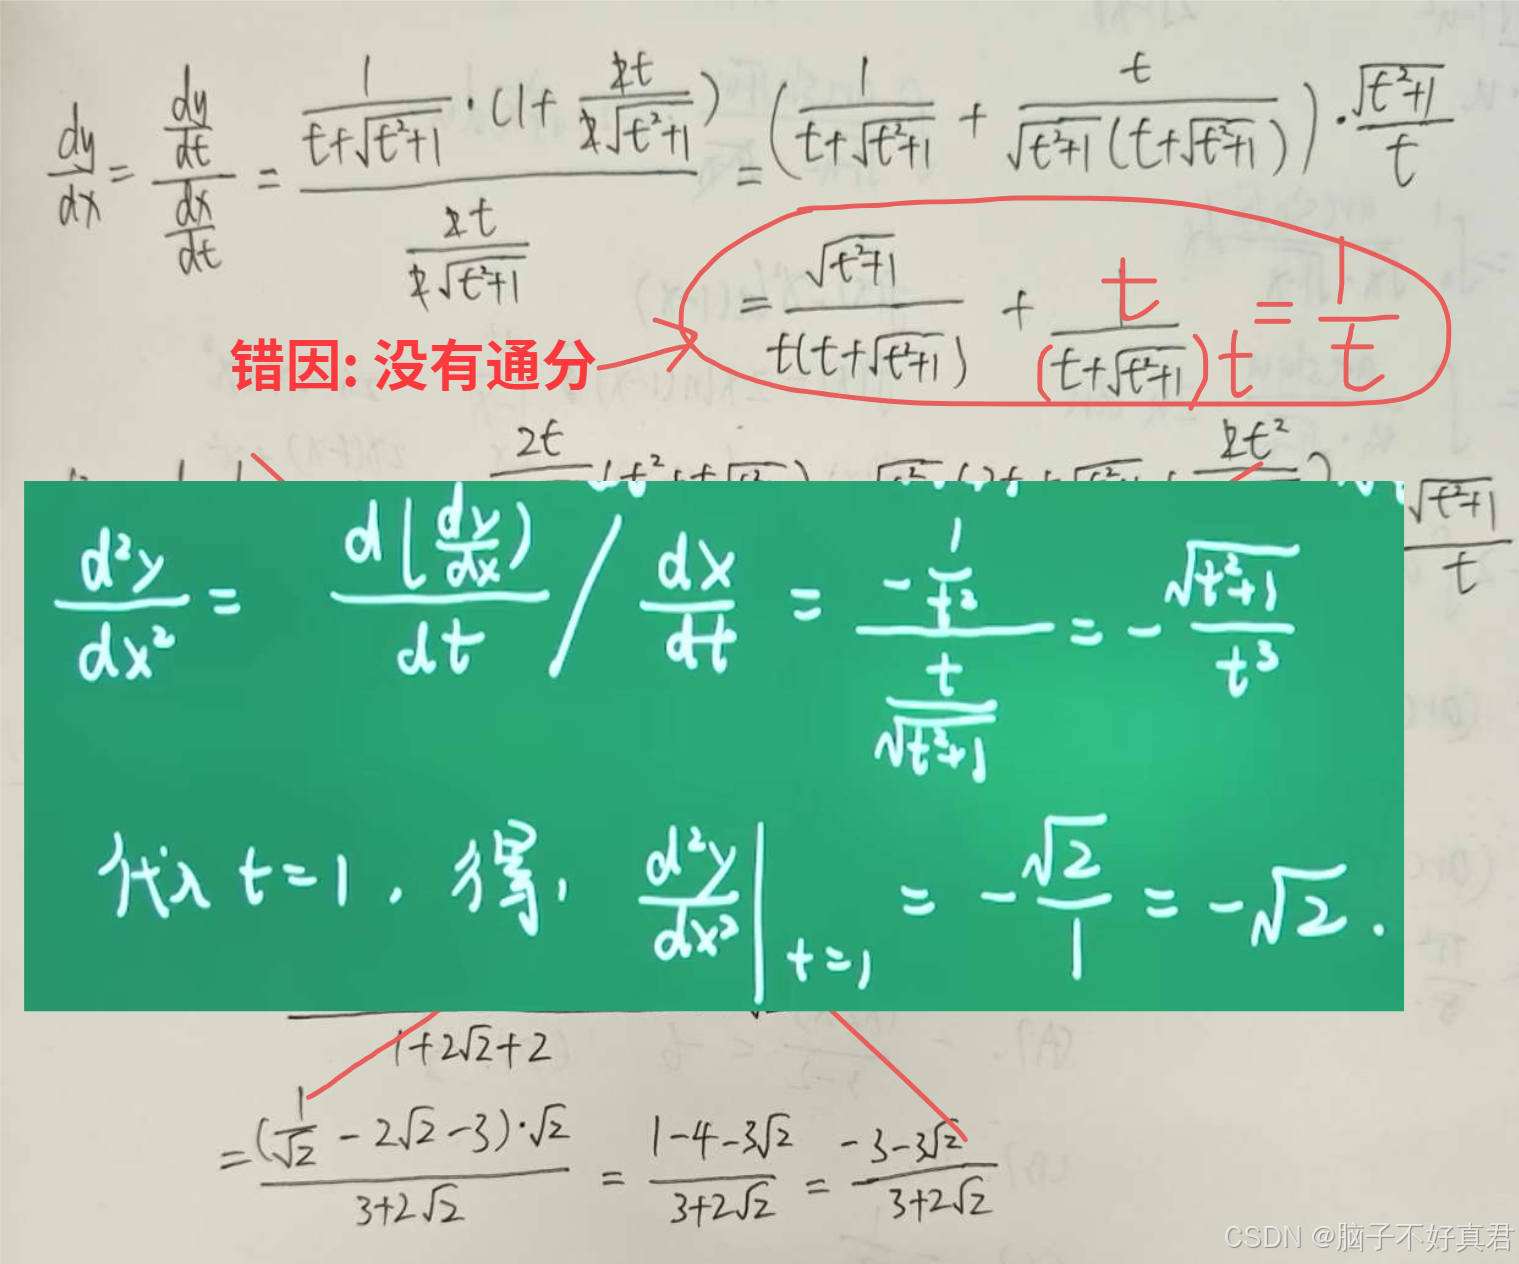 dy/dx = (dy/dt)/(dx/dt) = (1/(t+√(t²+1)) · (1+ 2t/(2√(t²+1))))/(2t/(2√(t²+1))) = (1/(t+√(t²+1)) + t/(√(t²+1)(t+√(t²+1)))) · √(t²+1)/t
= √(t²+1)/(t(t+√(t²+1))) + t/((t+√(t²+1))t) = 1/t
错因: 没有通分
2t 2t²
√(t²+1)/t
d²y/dx² = d(dy/dx)/dt / dx/dt = (-1/t²)/(t/√(t²+1)) = -√(t²+1)/t³
代入 t=1, 得, d²y/dx²|t=1 = -√2/1 = -√2.
1+2√2+2
= ((1/√2 - 2√2 - 3)·√2)/(3+2√2) = (1-4-3√2)/(3+2√2) = (-3-3√2)/(3+2√2)
CSDN @脑子不好真君